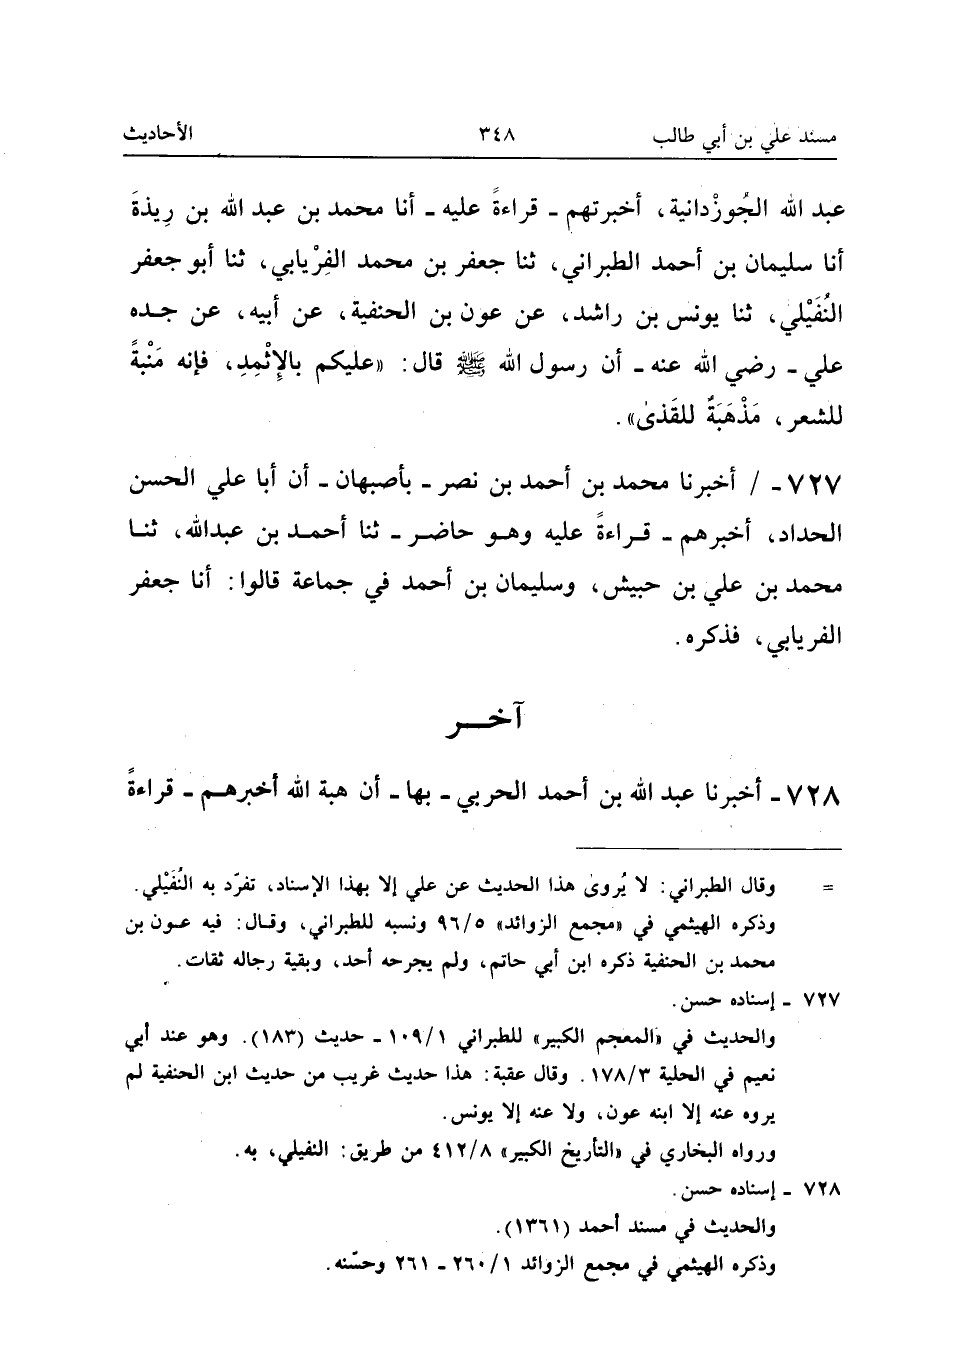 مسند علي بن أبي طالب ٣٤٨ الأحاديث
عبد الله الجُوزْدانية، أخبرتهم ـ قراءةً عليه ـ أنا محمد بن عبد الله بن رِيذةَ
أنا سليمان بن أحمد الطبراني، ثنا جعفر بن محمد الفِرْيابي، ثنا أبو جعفر
النُفَيْلي، ثنا يونس بن راشد، عن عون بن الحنفية، عن أبيه، عن جده
علي ـ رضي الله عنه ـ أن رسول الله ﷺ قال: «عليكم بالإِثْمِدِ، فإنه مَنْبةً
للشعر، مَذْهَبَةٌ للقَذىٰ».
٧٢٧ ـ / أخبرنا محمد بن أحمد بن نصر ـ بأصبهان ـ أن أبا علي الحسن
الحداد، أخبرهم ـ قراءةً عليه وهو حاضر ـ ثنا أحمد بن عبدالله، ثنا
محمد بن علي بن حبيش، وسليمان بن أحمد في جماعة قالوا: أنا جعفر
الفريابي، فذكره.
آخر
٧٢٨ ـ أخبرنا عبد الله بن أحمد الحربي ـ بها ـ أن هبة الله أخبرهم ـ قراءةً
= وقال الطبراني: لا يُروىٰ هذا الحديث عن علي إلا بهذا الإسناد، تفرّد به النُفَيْلي.
وذكره الهيثمي في «مجمع الزوائد» ٩٦/٥ ونسبه للطبراني، وقال: فيه عون بن
محمد بن الحنفية ذكره ابن أبي حاتم، ولم يجرحه أحد، وبقية رجاله ثقات.
٧٢٧ ـ إسناده حسن.
والحديث في «المعجم الكبير» للطبراني ١٠٩/١ ـ حديث (١٨٣). وهو عند أبي
نعيم في الحلية ١٧٨/٣. وقال عقبة: هذا حديث غريب من حديث ابن الحنفية لم
يروه عنه إلا ابنه عون، ولا عنه إلا يونس.
ورواه البخاري في «التأريخ الكبير» ٤١٢/٨ من طريق: النفيلي، به.
٧٢٨ ـ إسناده حسن.
والحديث في مسند أحمد (١٣٦١).
وذكره الهيثمي في مجمع الزوائد ٢٦٠/١ ـ ٢٦١ وحسّنه.